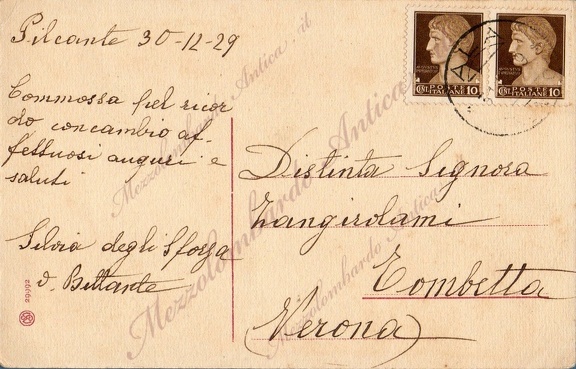 Pilcante 30-12-29
Commossa pel ricor
do concambio af-
fettuosi auguri e
saluti
Silvia degli Sforza
d. Bettante
Distinta Signora
Zangirolami
Tombetta
(Verona)
POSTE
ITALIANE
CENT. 10
POSTE
ITALIANE
CENT. 10
29992
Mezzolombardo Antica.it
Mezzolombardo Antica
Mezzolombardo Antica